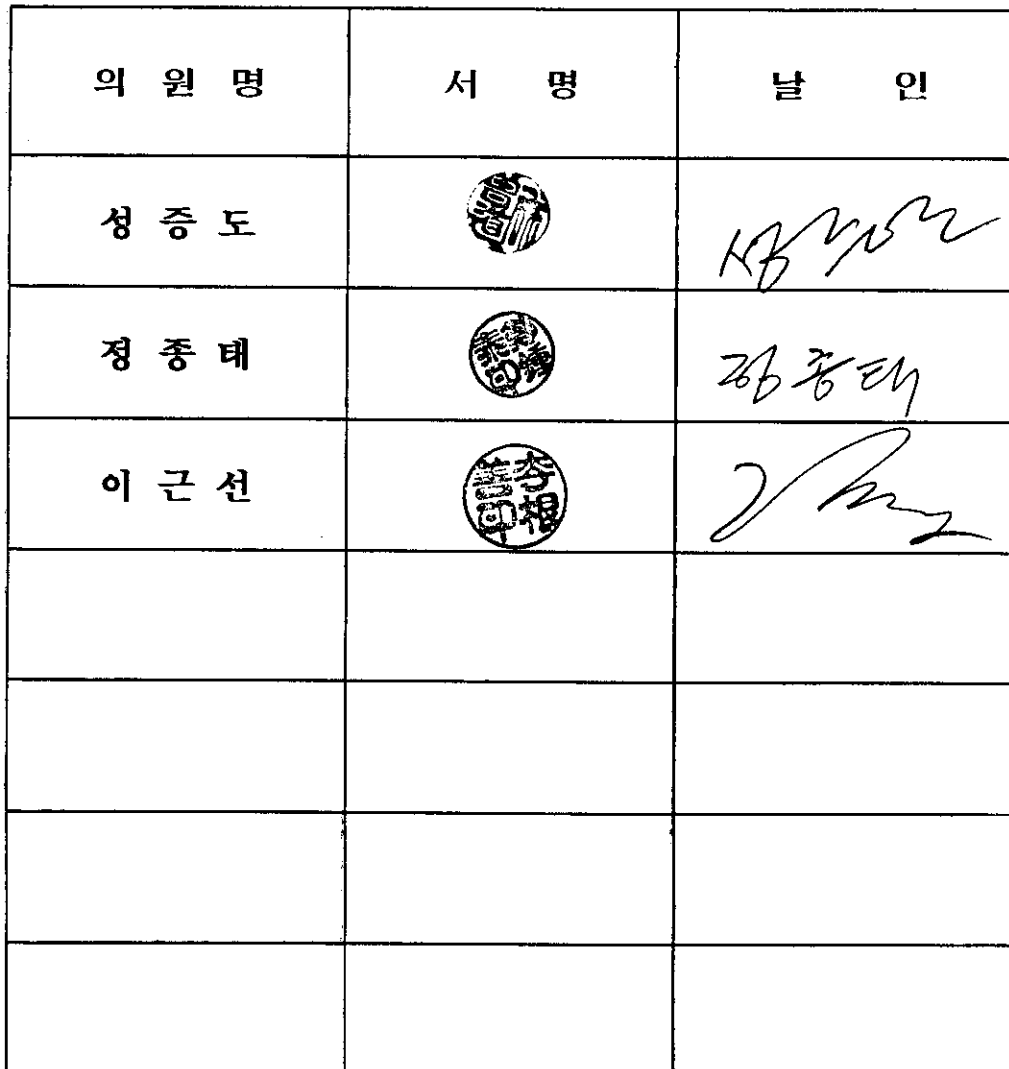 의 원 명 서 명 날 인
성 증 도
정 종 태 정종태
이 근 선 李根善印